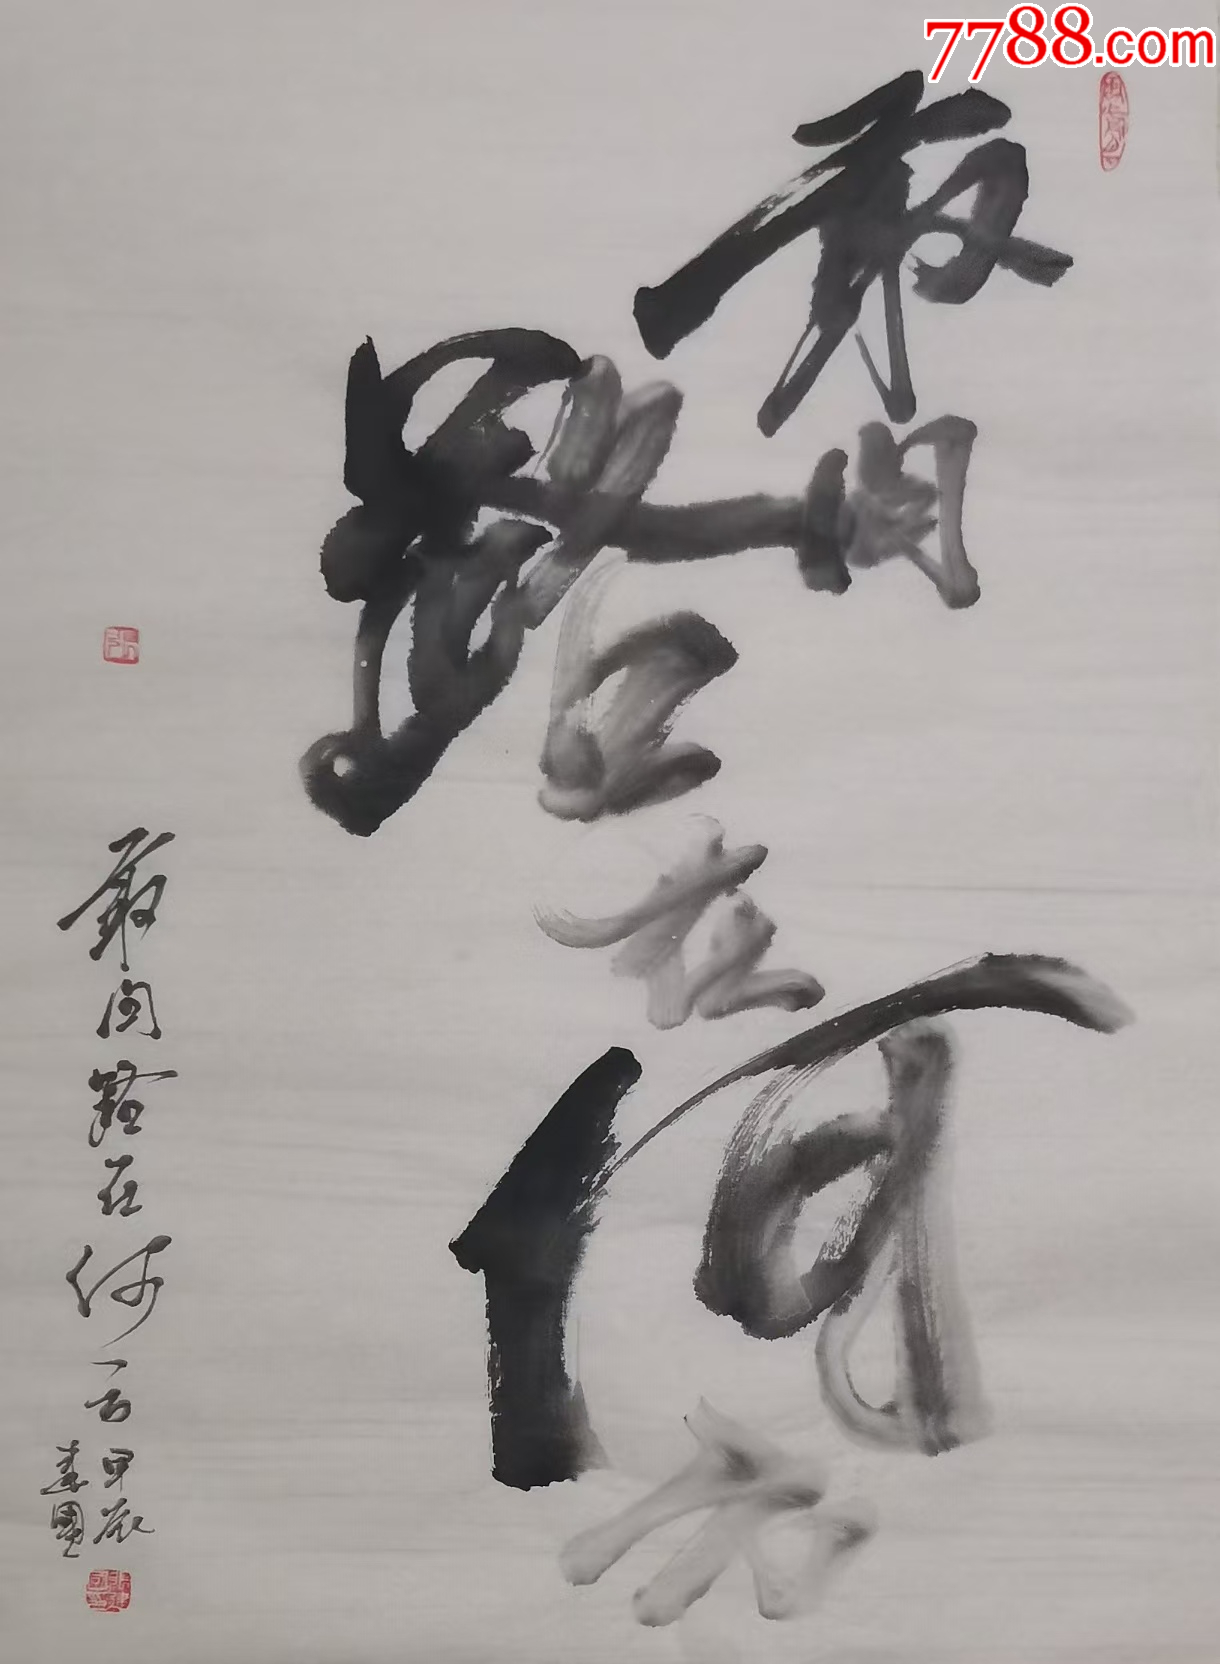 7788.com
敢问
路在
何方
敢问路在何方甲辰
建国